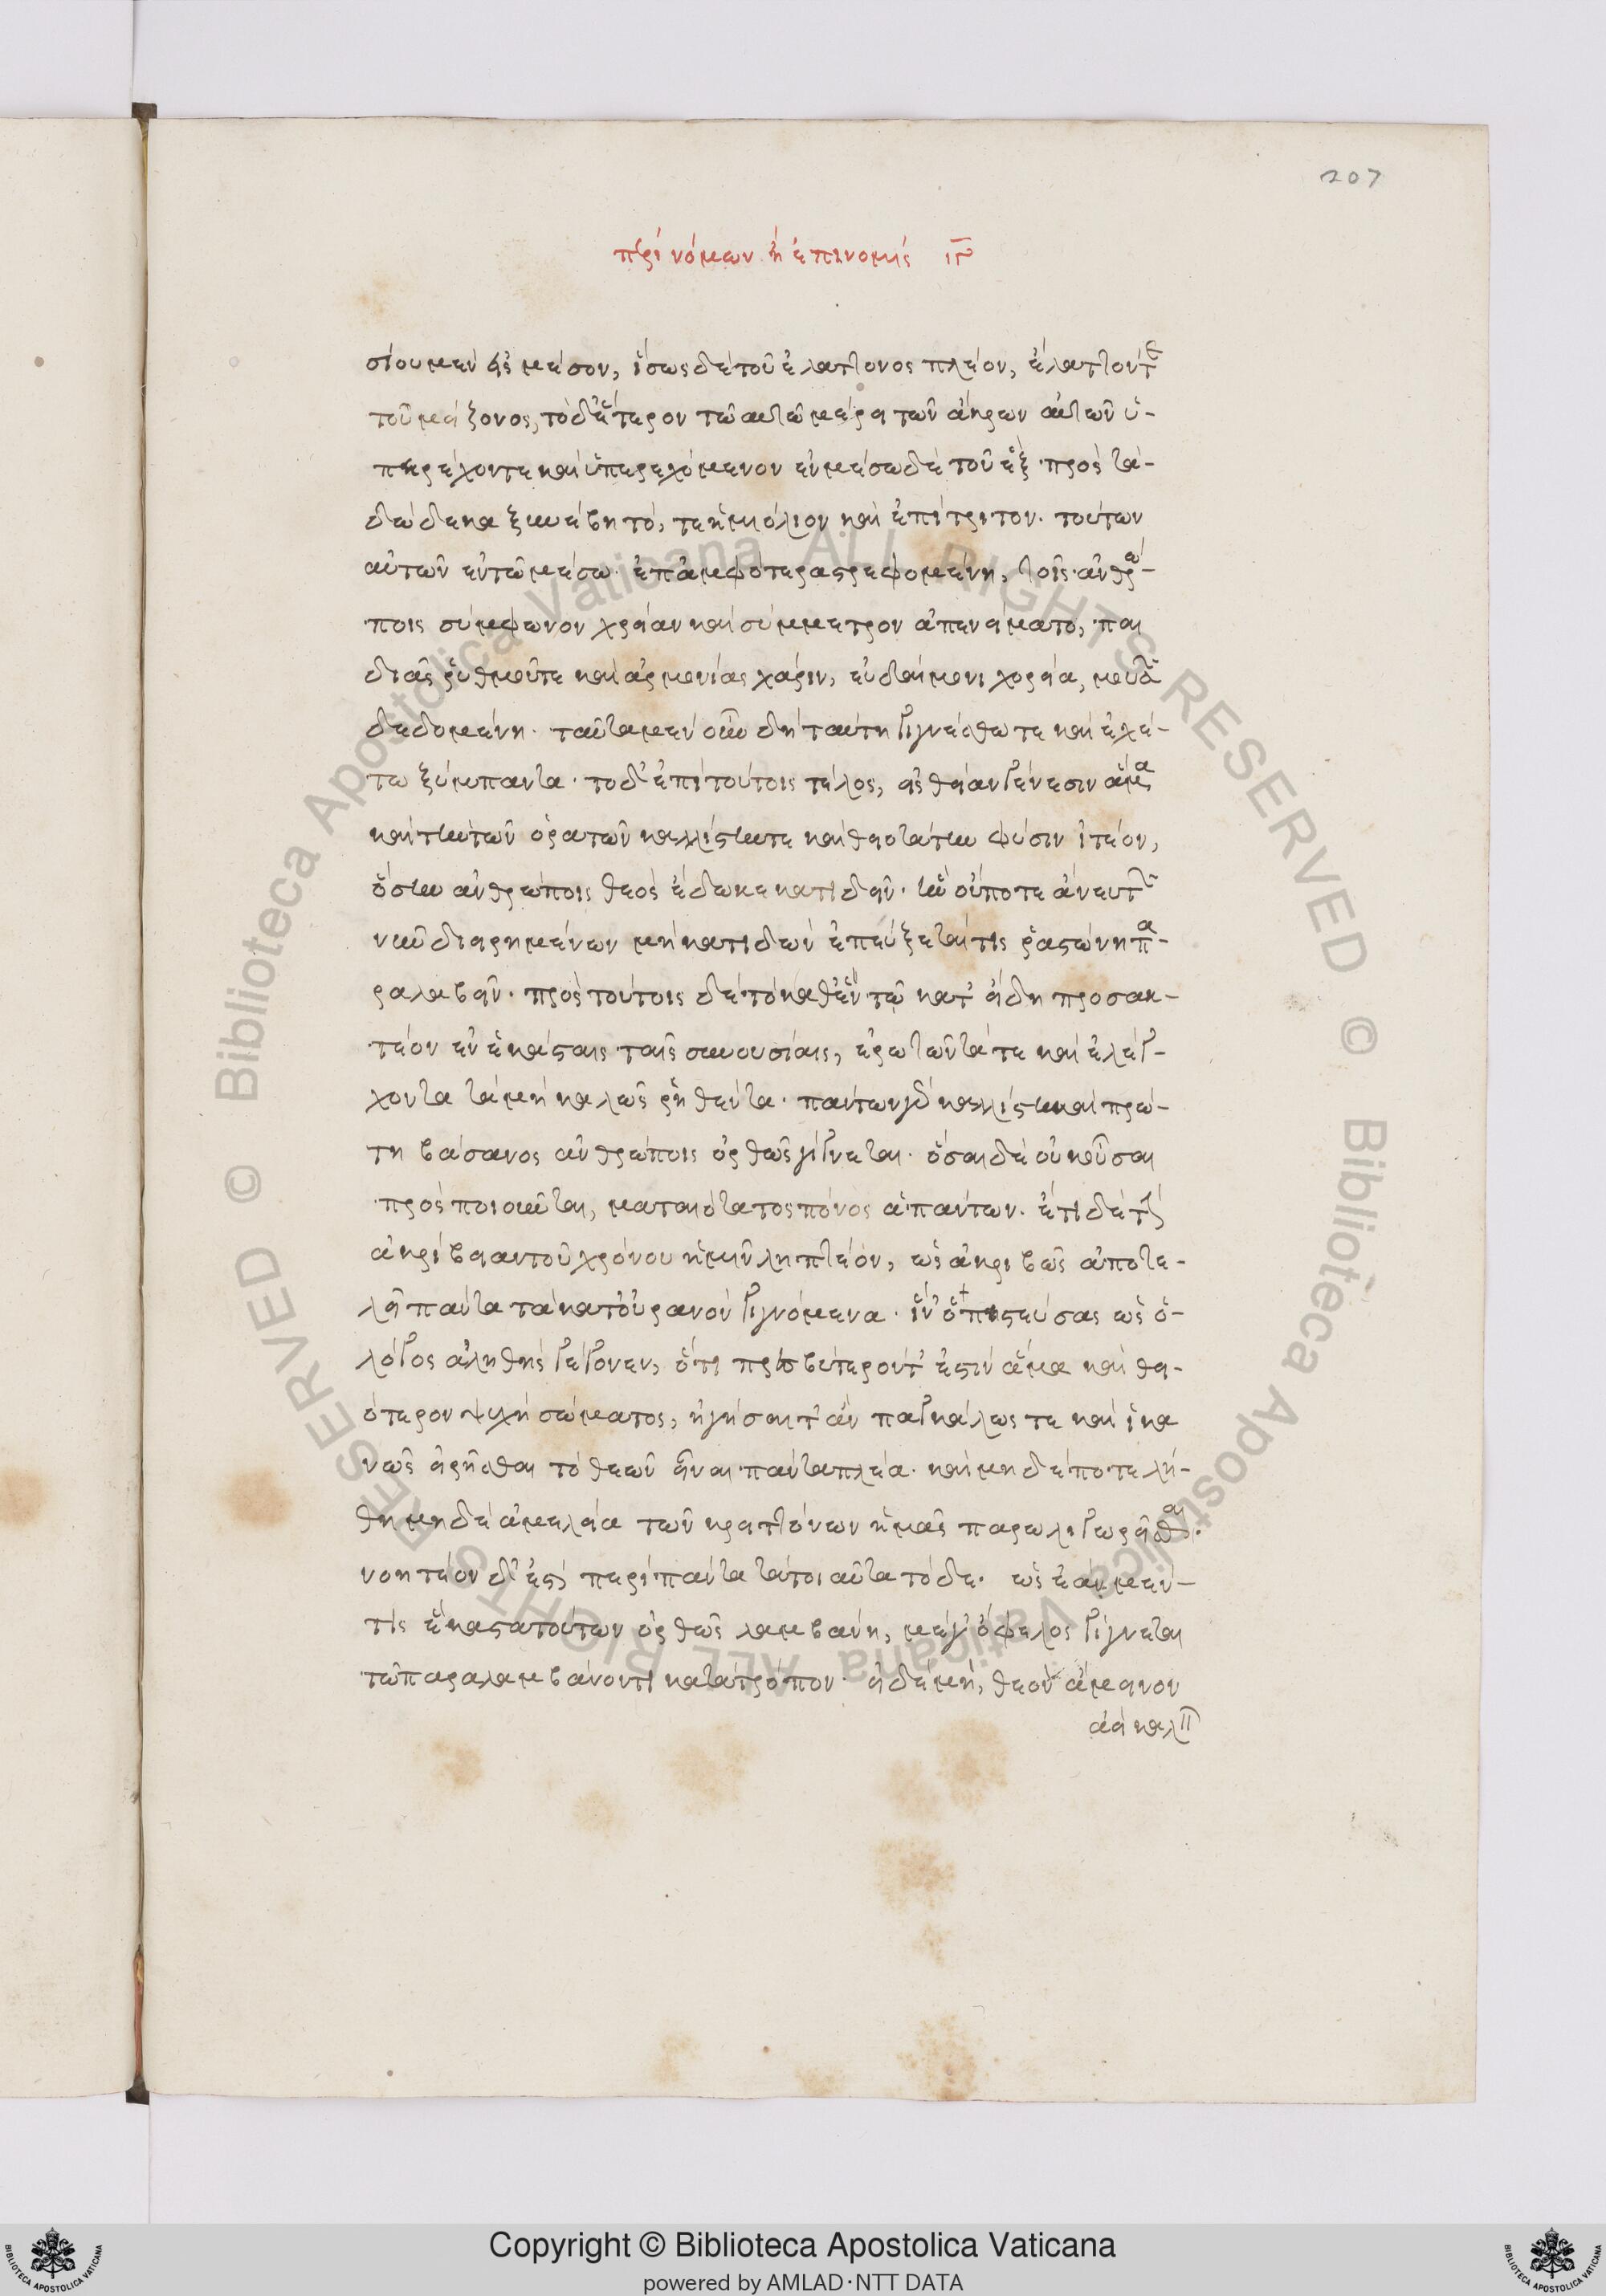 207
περὶ νόμων ἢ ἐπινομίς ιγ
σίου μὲν εἰς μέσον, ἴσως δὲ τοῦ ἐλάττονος πλέον, ἔλαττόν τε
τοῦ μείζονος, τὸ δ' ἕτερον τῶ αὐτῶ μέρει τῶν ἄκρων αὐτῶν ὑ-
περέχον τε καὶ ὑπερεχόμενον ἐν μέσω δὲ τοῦ ἓξ πρὸς τὰ-
δώδεκα ξυνέβη τό, τε ἡμιόλιον καὶ ἐπίτριτον. τούτων
αὐτῶν ἐν τῶ μέσω ἐπ' ἀμφότερα στρεφομένη, τοῖς ἀνθρώ-
ποις σύμφωνον χρείαν καὶ σύμμετρον ἀπενείματο, παι
διᾶς ῥυθμοῦ τε καὶ ἁρμονίας χάριν, εὐδαίμονι χορεία, μουσῶν
δεδομένη. ταῦτα μὲν οὖν δὴ ταύτη γιγνέσθω τε καὶ ἐχέ-
τω ξύμπαντα. τὸ δ' ἐπὶ τούτοις τέλος, εἰς θείαν γένεσιν ἅμα
καὶ τὴν τῶν ὁρατῶν καλλίστην τε καὶ θειοτάτην φύσιν ἰτέον,
ὅσην ἀνθρώποις θεὸς ἔδωκε κατιδεῖν. ἣν οὔποτε ἄνευ τῶν
νῦν διειρημένων μὴ κατιδὼν ἐπεύξεταί τις ῥαστώνη πα-
ραλαβεῖν. πρὸς τούτοις δὲ τὸ καθ' ἓν τῶ κατ' εἴδη προσακ-
τέον ἐν ἑκάσταις ταῖς συνουσίαις, ἐρωτῶντά τε καὶ ἐλέγ-
χοντα τὰ μὴ καλῶς ῥηθέντα. πάντων γὰρ καλλίστη καὶ πρώ-
τη βάσανος ἀνθρώποις ὀρθῶς γίγνεται. ὅσαι δὲ οὐκ οὖσαι
προσποιοῦνται, ματαιότατος πόνος ἁπάντων. ἔτι δὲ τὴν
ἀκρίβειαν τοῦ χρόνου ἡμῖν ληπτέον, ὡς ἀκριβῶς ἀποτε-
λεῖ πάντα τὰ κατ' οὐρανὸν γιγνόμενα. ἵν' ὁ πιστεύσας ὡς ὁ-
λόγος ἀληθὴς γέγονεν, ὅτι πρεσβύτερόν τ' ἐστὶν ἅμα καὶ θει-
ότερον ψυχὴ σώματος, ἡγήσαιτ' ἂν παγκάλως τε καὶ ἱκα
νῶς εἰρῆσθαι τὸ θεῶν εἶναι πάντα πλέα. καὶ μηδέποτε λή-
θη μηδὲ ἀμελεία τῶν κρειττόνων ἡμᾶς παρωλιγωρεῖσθαι.
νοητέον δ' ἐστὶ περὶ πάντα τὰ τοιαῦτα τόδε. ὡς ἐὰν μέν-
τις ἕκαστα τούτων ὀρθῶς λαμβάνη, μέγ' ὄφελος γίγνεται
τῶ παραλαμβάνοντι κατὰ τρόπον. εἰ δὲ μή, θεὸν ἄμεινον
ἀεὶ καλεῖν
Copyright © Biblioteca Apostolica Vaticana
powered by AMLAD·NTT DATA